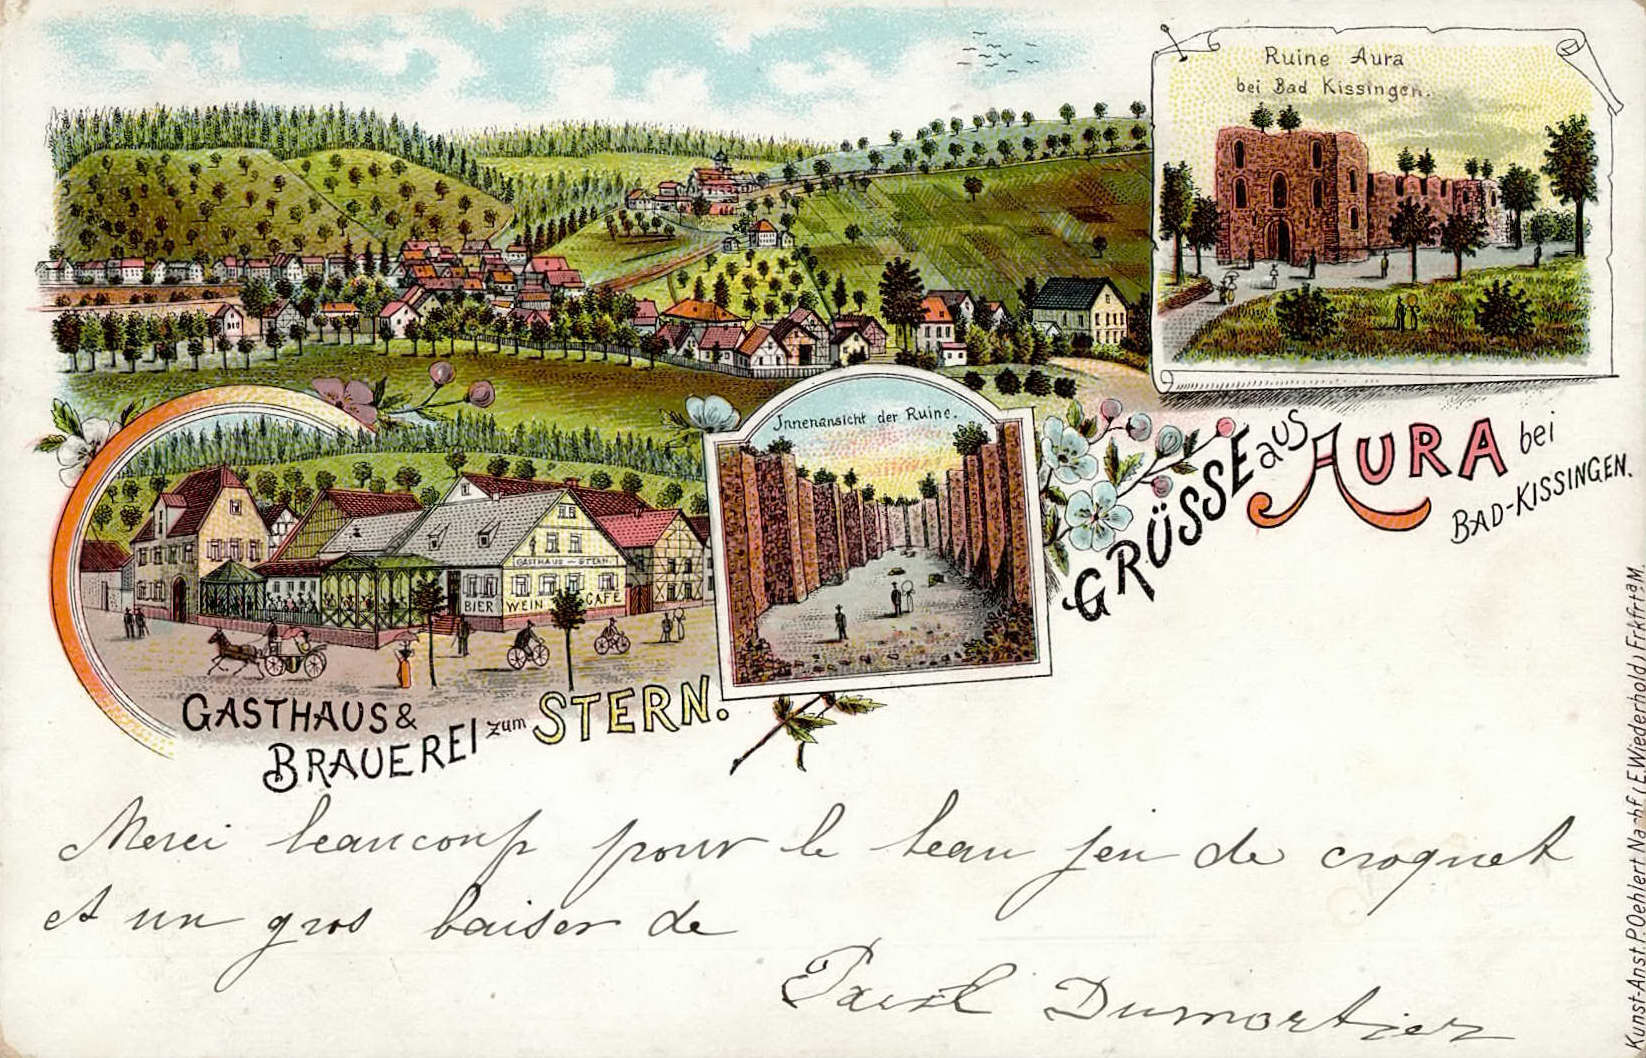 Ruine Aura
bei Bad Kissingen.
GRÜSSE aus AURA bei
BAD-KISSINGEN.
Innenansicht der Ruine.
GASTHAUS - STERN
BIER WEIN CAFÉ
GASTHAUS &
BRAUEREI zum STERN.
Merci beaucoup pour le beau jeu de croquet
et un gros baiser de
Paul Dumortier
Kunst-Anst. P. Oehlert Nachf. (E. Wiederhold) Frkfrt a M.